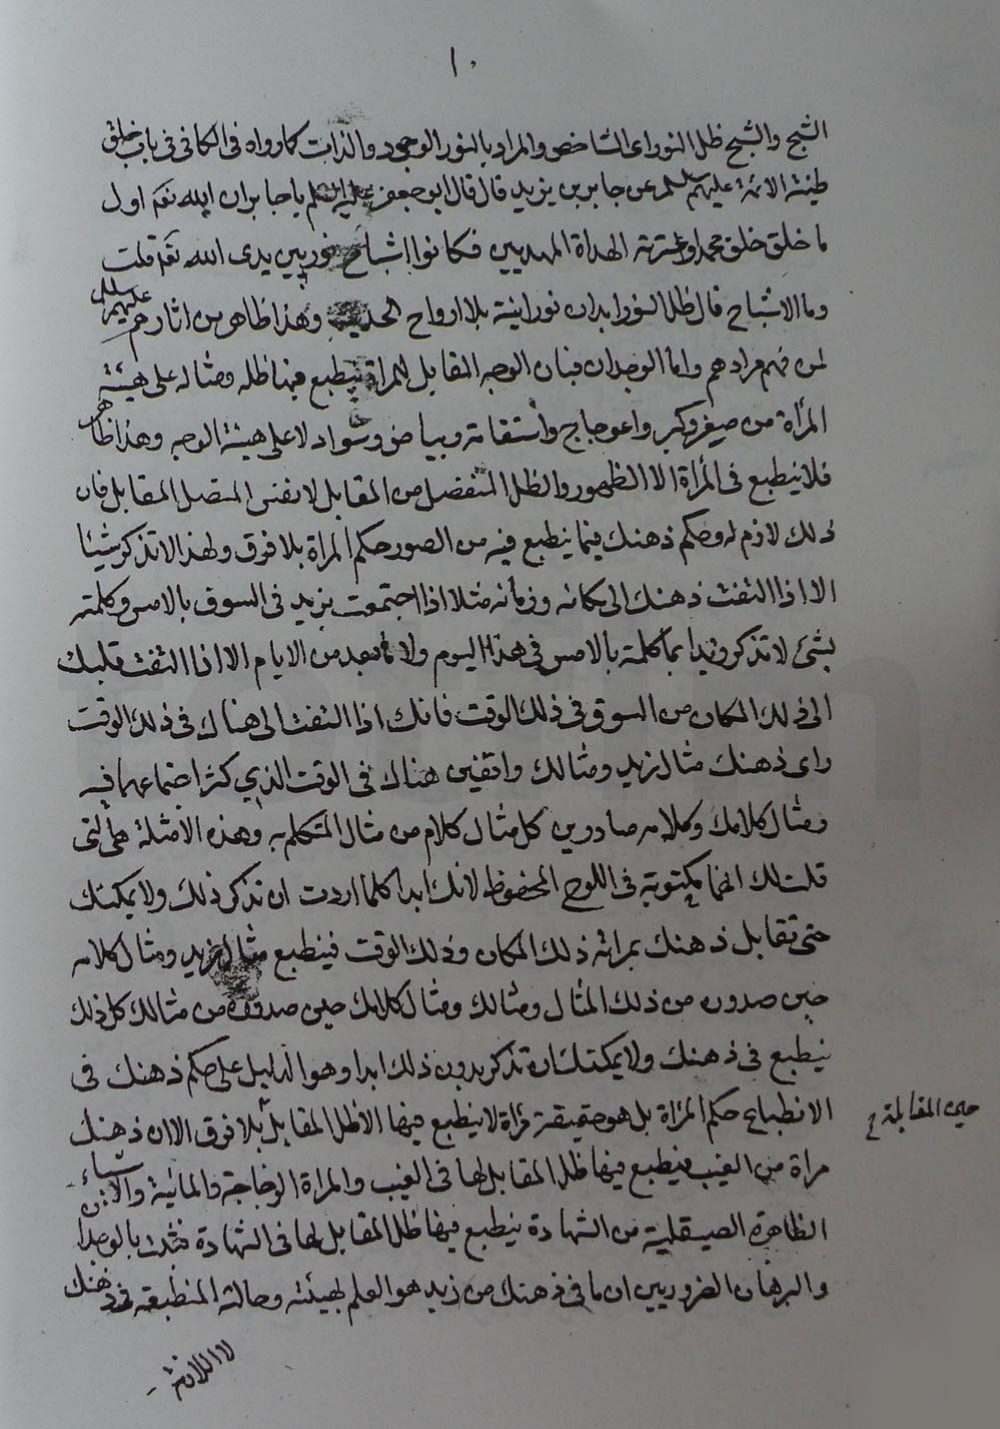 ١٠
الشبح والشبح ظل النور اى الشاخص والمراد بالنور الوجود والذات كما رواه فى الكافى فى باب خلق
طينة الائمة عليهم السلم عن جابر بن يزيد قال قال ابو جعفر عليه السلم يا جابر ان الله تعه اول
ما خلق خلق محمدا وعترته الهداة المهديين فكانوا اشباح نور بين يدى الله تعه قلت
وما الاشباح قال ظل النور ابدان نورانية بلا ارواح الحديث وهذا ظاهر من اثارهم عليهم السلم
لمن فهم مرادهم واما الوجدان فبان الوجه المقابل للمراة ينطبع فيها ظله ومثاله على هيئة
المرأة من صغر وكبر واعوجاج واستقامة وبياض وسواد لا على هيئة الوجه وهذا ظاهر
فلا ينطبع فى المرأة الا الظهور والظل المنفصل من المقابل لا نفس المتصل المقابل فان
ذلك لازم له وحكم ذهنك فيما ينطبع فيه من الصور حكم المراة بلا فرق ولهذا لا تذكر شيئا
الا اذا التفت ذهنك الى مكانه وزمانه مثلا اذا اجتمعت بزيد فى السوق بالامس وكلمته
بشئ لا تذكر زيدا بما كلمته بالامس فى هذا اليوم ولا ما بعد من الايام الا اذا التفت قلبك
الى ذلك المكان من السوق فى ذلك الوقت فانك اذا التفت الى هناك فى ذلك الوقت
راى ذهنك مثال زيد ومثالك واقفين هناك فى الوقت الذي كثر اجتماعهما فيه
ومثال كلامك وكلامه صادرين كل مثال كلام من مثال المتكلم به وهذه الامثلة هى التى
قلت لك انها مكتوبة فى اللوح المحفوظ لانك ابدا كلما اردت ان تذكر ذلك ولا يمكنك
حتى تقابل ذهنك بمراته ذلك المكان وذلك الوقت فينطبع مثال زيد ومثال كلامه
حين صدوره من ذلك المثال ومثالك ومثال كلامك حين صدوره من مثالك كل ذلك
ينطبع فى ذهنك ولا يمكنك ان تذكر بدون ذلك ابدا وهو الدليل على حكم ذهنك فى
الانطباع حكم المرأة بل هو حقيقة مرأة لا ينطبع فيها الا ظل المقابل بلا فرق الا ان ذهنك
حين المقابلة
مراة من الغيب فينطبع فيها ظل المقابل لها فى الغيب والمراة الزجاجة والمائية والاشياء
الظاهرة الصيقلية من الشهادة ينطبع فيها ظل المقابل لها فى الشهادة فثبت بالوجدان
والبرهان الضروريين ان ما فى ذهنك من زيد هو العلم بهيئته وحالته المنطبعة فى ذهنك